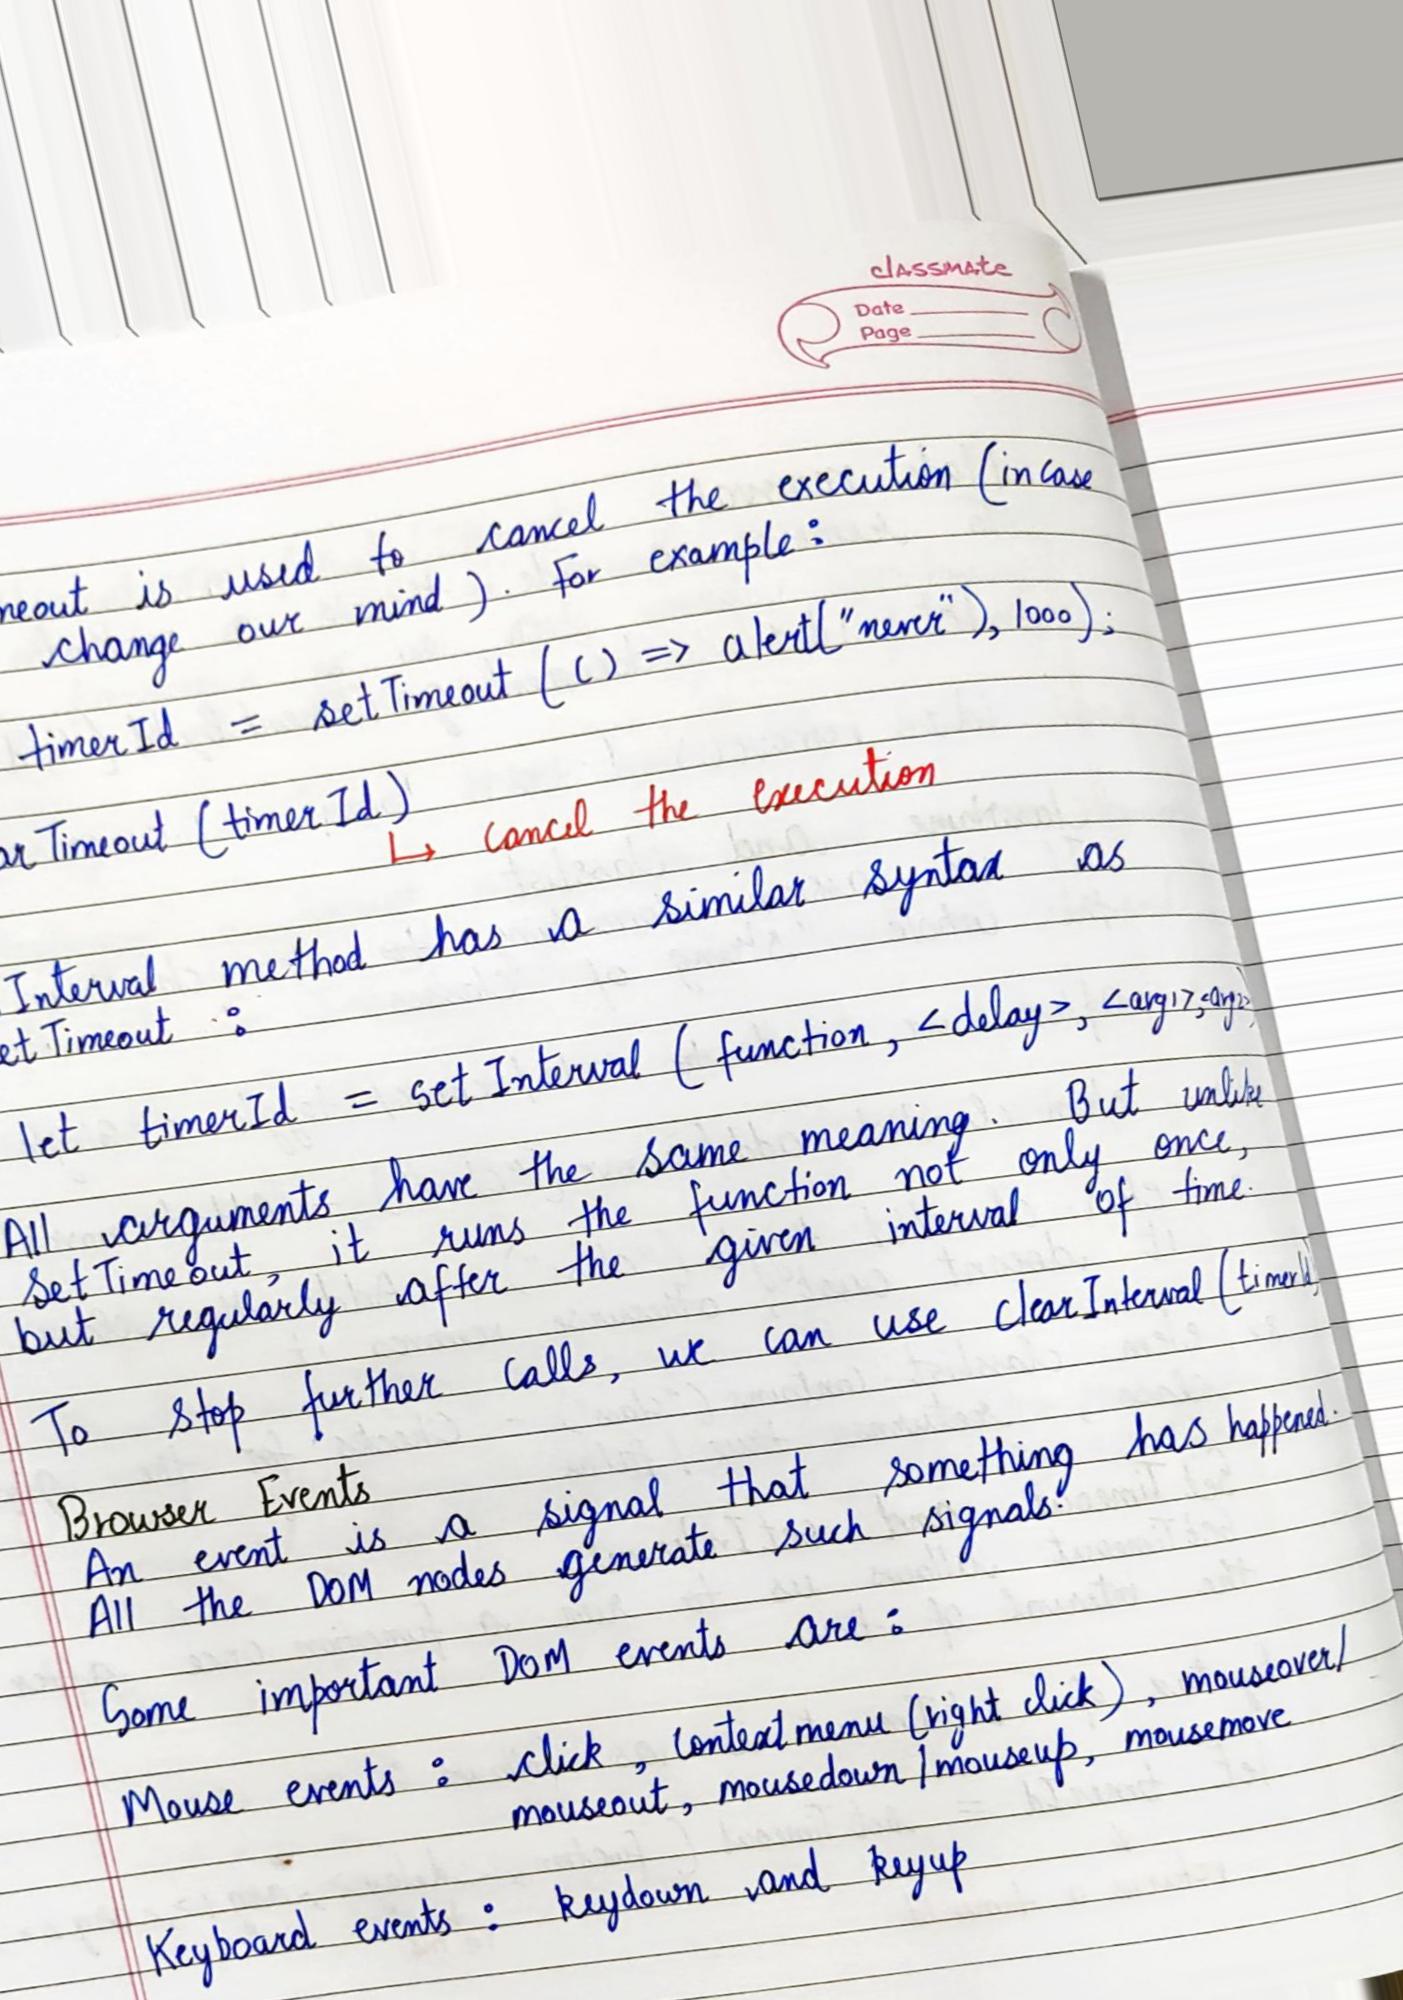 classmate
Date
Page
neout is used to cancel the execution (incase
change our mind). For example:
timerId = setTimeout (() => alert("never"), 1000);
ar Timeout (timerId)
↳ cancel the execution
Interval method has a similar syntax as
et Timeout :
let timerId = setInterval ( function, <delay>, <arg1>, <arg2>
All arguments have the same meaning. But unlike
setTimeout, it runs the function not only once,
but regularly after the given interval of time.
To stop further calls, we can use clearInterval (timerId)
Browser Events
An event is a signal that something has happened.
All the DOM nodes generate such signals.
Some important DOM events are :
Mouse events : click, contextmenu (right click), mouseover/
mouseout, mousedown / mouseup, mousemove
Keyboard events : keydown and keyup